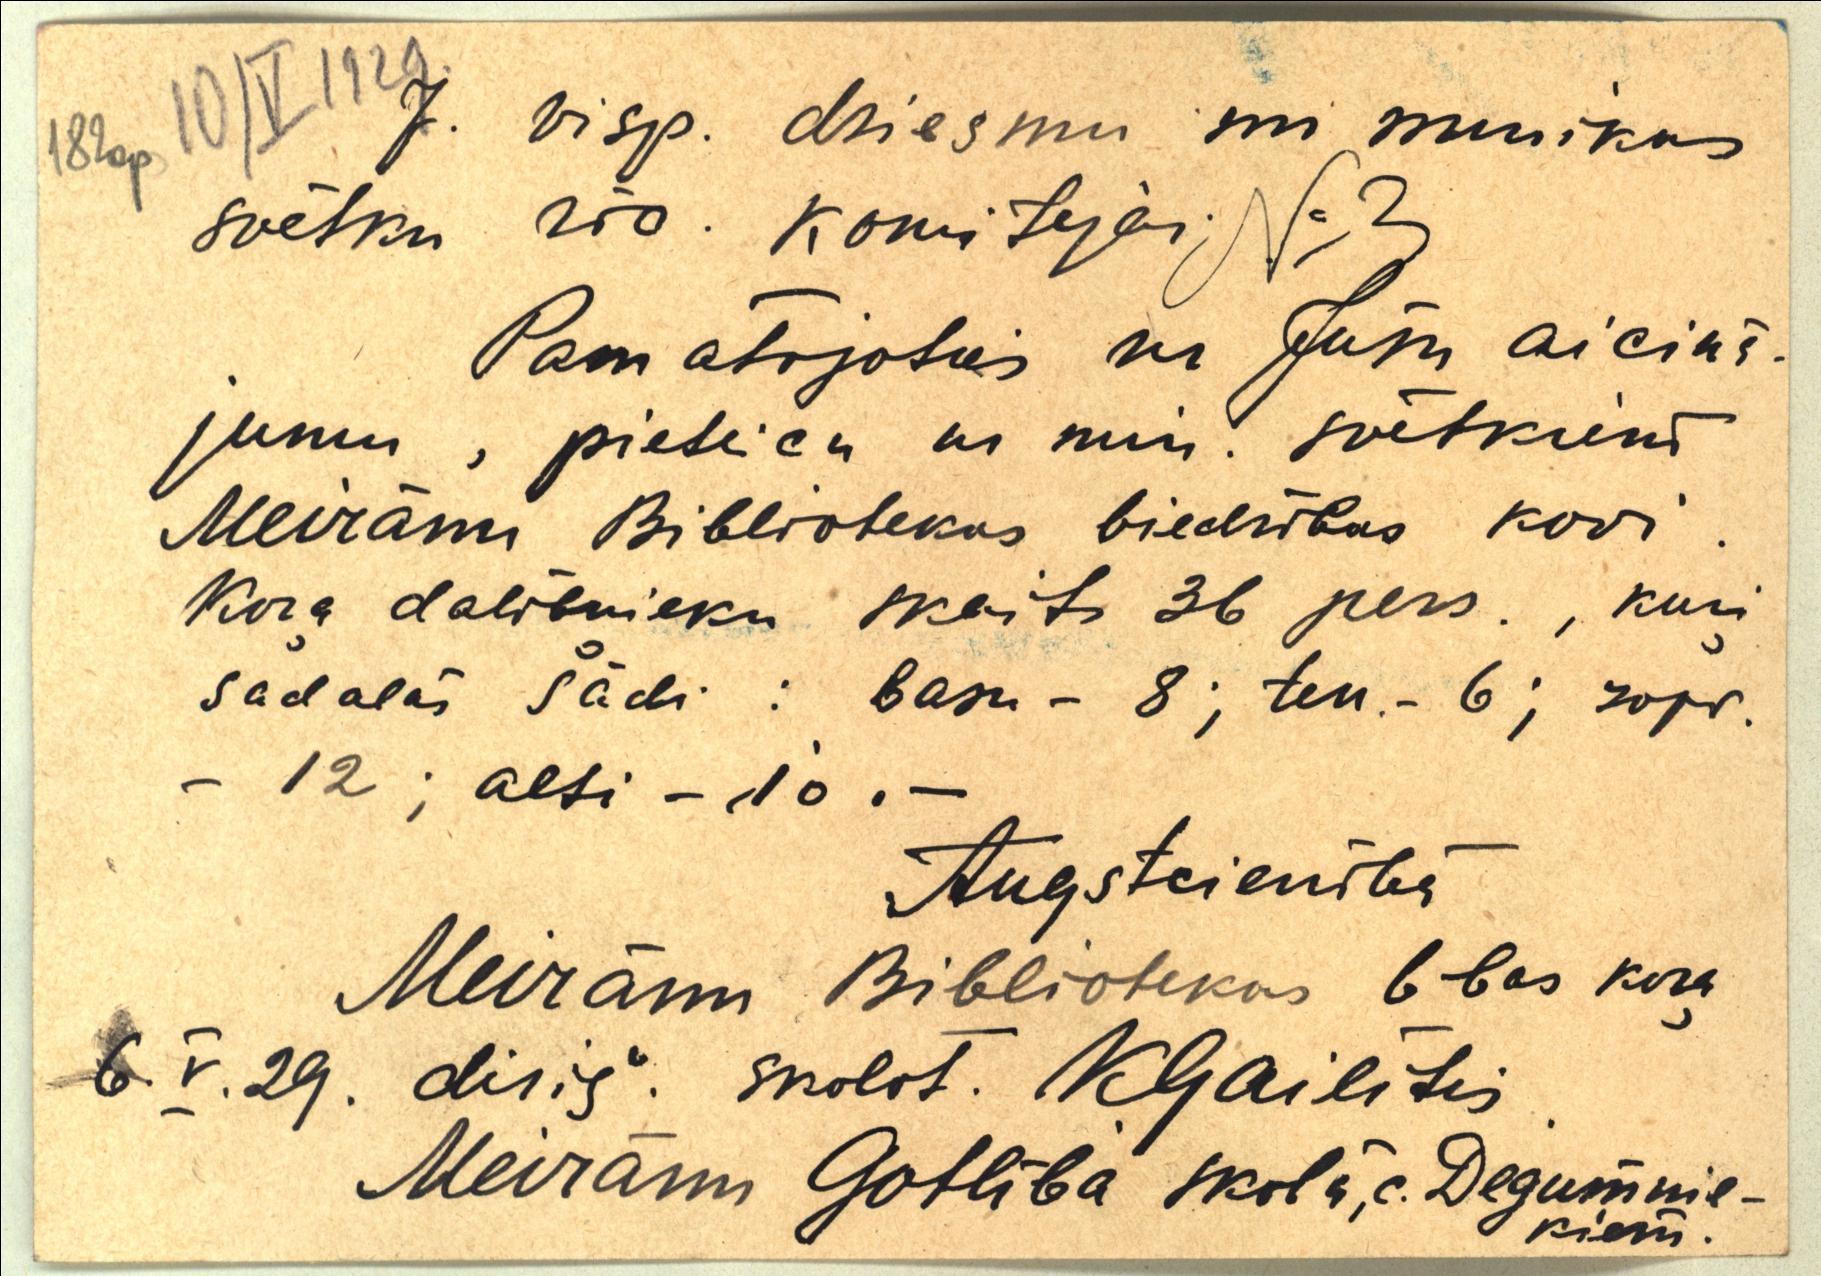 10/V 1929.
182op
7. visp. dziesmu un muzikas
svētku rīc. Komitejai. № 3
Pamatojoties uz Jūsu aicinā-
jumu, pieteicu uz min. svētkiem
Meirānu Bibliotekas biedrības kori.
Koŗa dalībnieku skaits 36 pers., kuŗi
sadalās šādi: basu - 8; ten. - 6; sopr.
- 12; alti - 10. -
Augstcienībā
Meirānu Bibliotekas b-bas koŗa
6. V. 29. diriģ. skolot. KGailītis
Meirānu Gotlība skolā, c. Degumnie-
kiem.